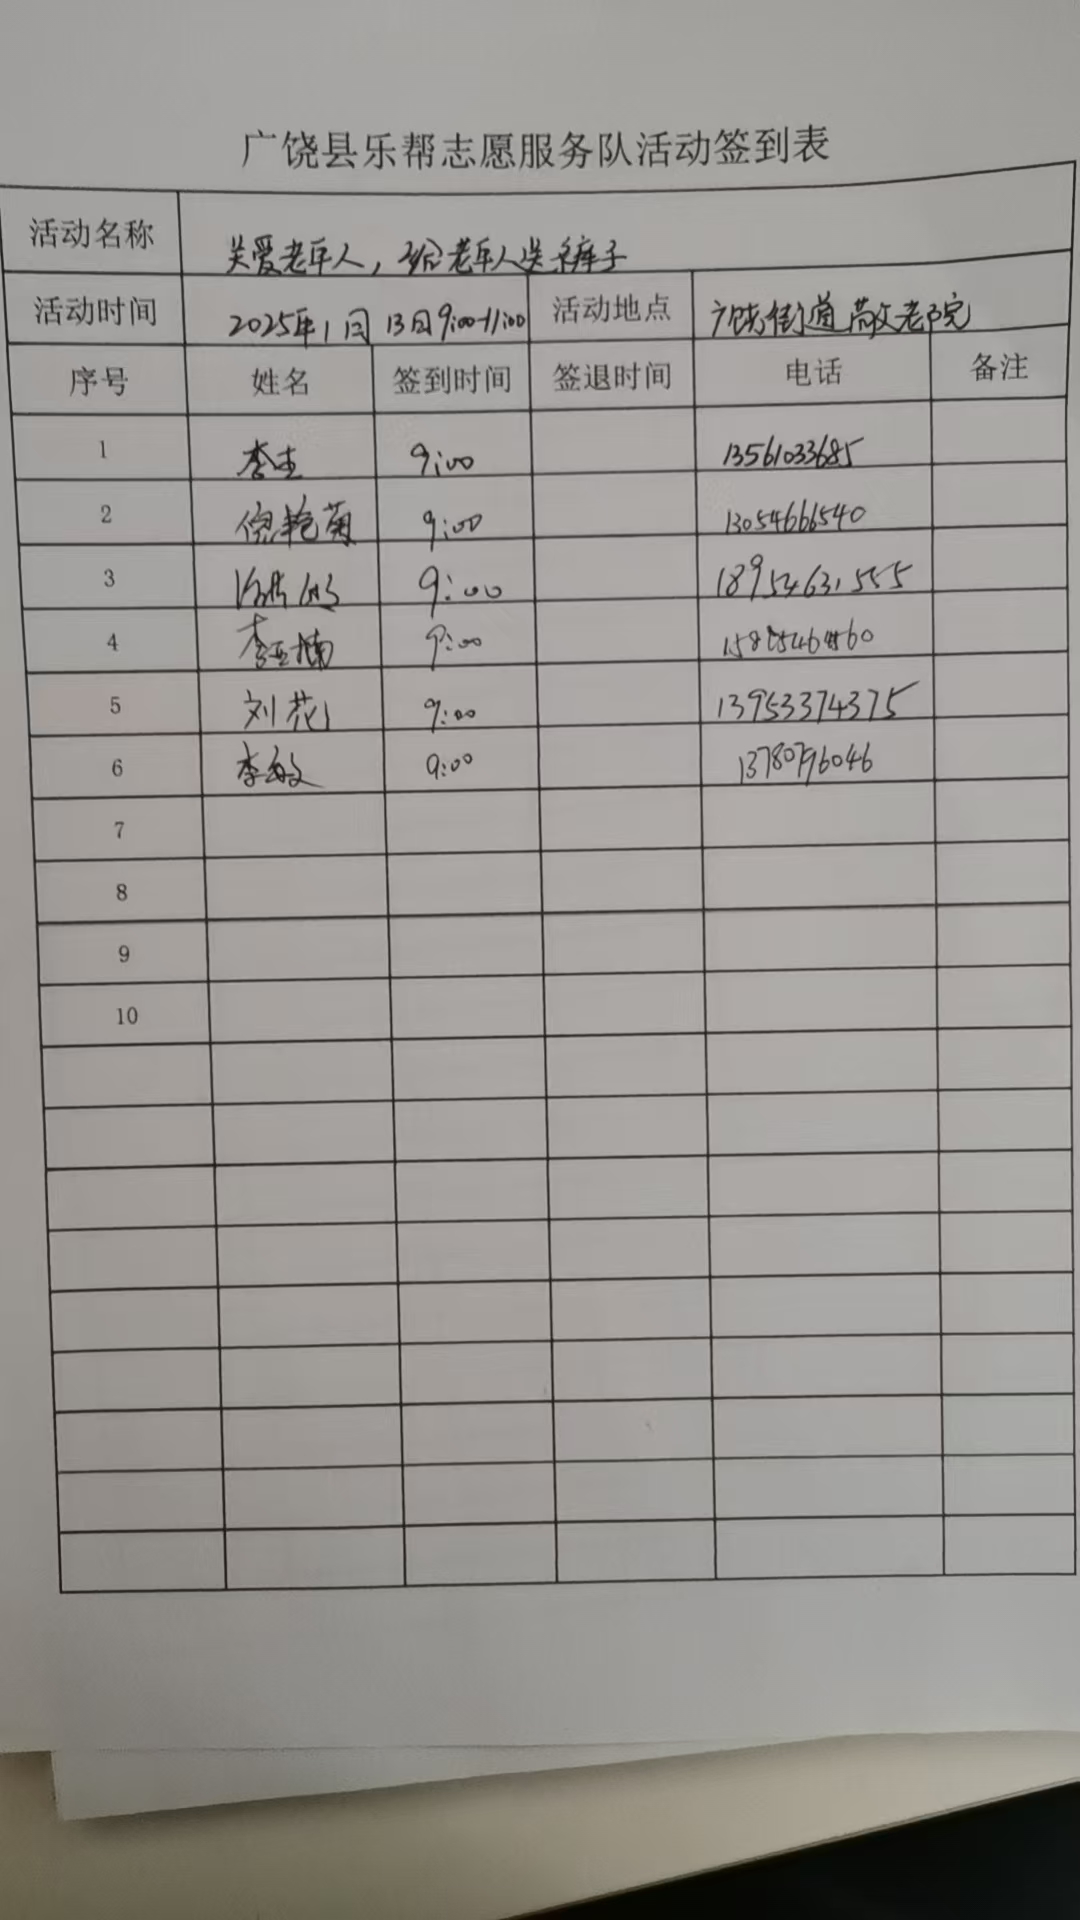 广饶县乐帮志愿服务队活动签到表
活动名称 关爱老年人，给老年人送棉裤子
活动时间 2025年1月13日9:00-11:00 活动地点 广饶街道敬老院
序号 姓名 签到时间 签退时间 电话 备注
1 李 9:00 13561033685
2 倪艳菊 9:00 13054666540
3 9:00 18954631555
4 李亚楠 9:00
5 刘花 9:00 13953374375
6 李敏 9:00 13780796046
7
8
9
10